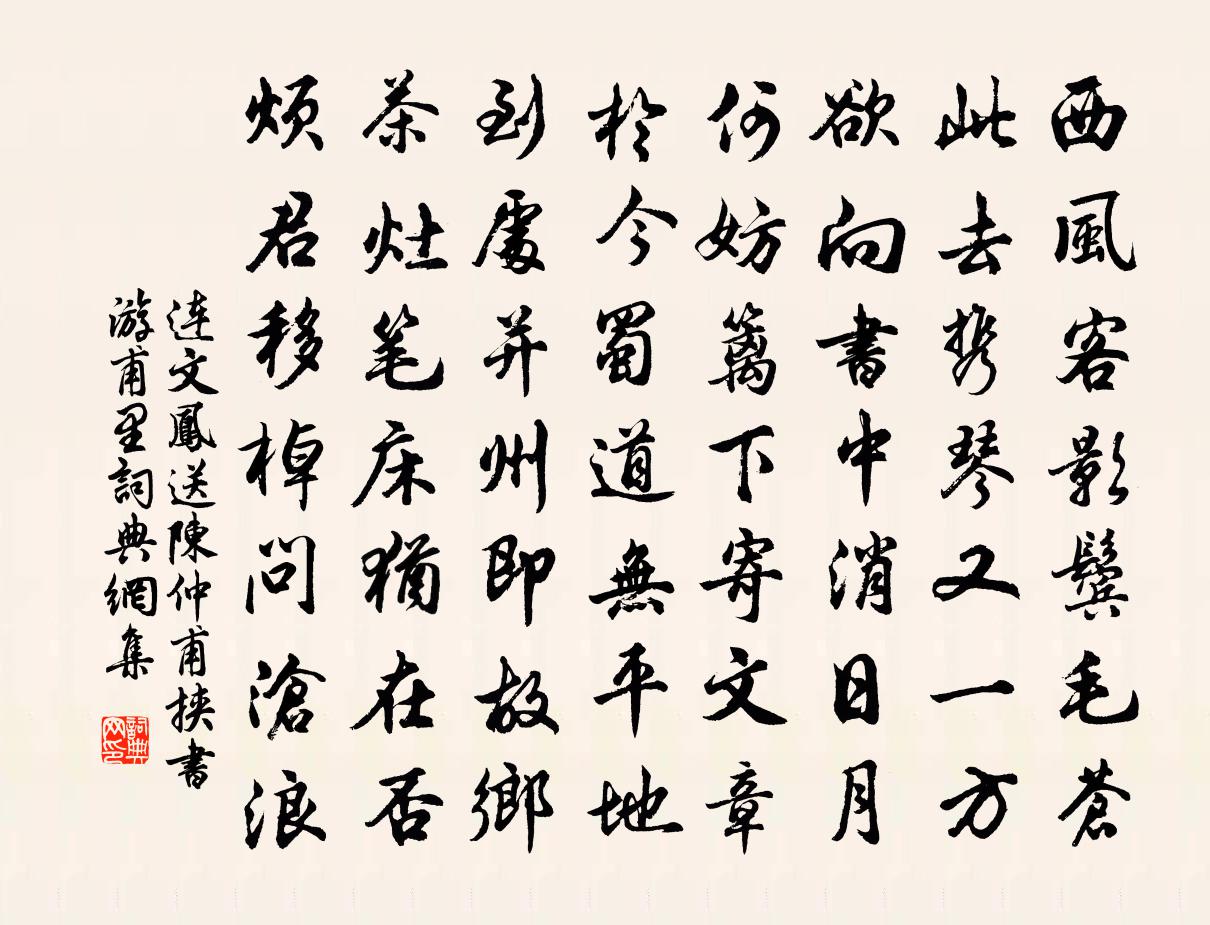 西風客影鬓毛蒼
此去携琴又一方
欲向書中消日月
何妨篱下寄文章
於今蜀道無平地
到處并州即故鄉
茶灶笔床猶在否
烦君移棹問滄浪
连文鳳送陳仲甫挾書
游甫里詞典網集
詞典网印